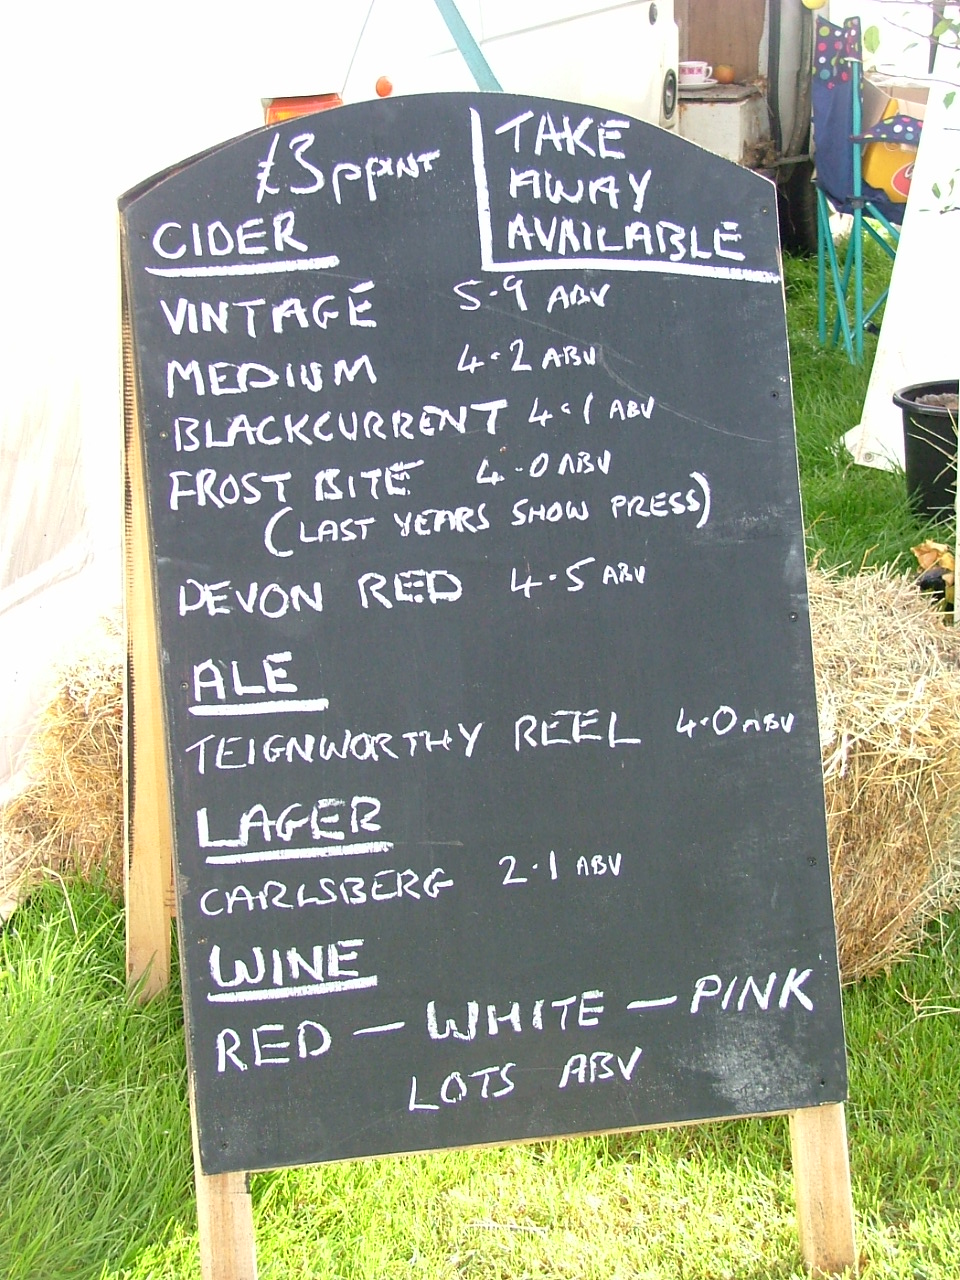 £3 ppint
TAKE
AWAY
AVAILABLE
CIDER
VINTAGE 5.9 ABV
MEDIUM 4.2 ABV
BLACKCURRENT 4.1 ABV
FROST BITE 4.0 ABV
(LAST YEARS SHOW PRESS)
DEVON RED 4.5 ABV
ALE
TEIGNWORTHY REEL 4.0 ABV
LAGER
CARLSBERG 2.1 ABV
WINE
RED — WHITE — PINK
LOTS ABV